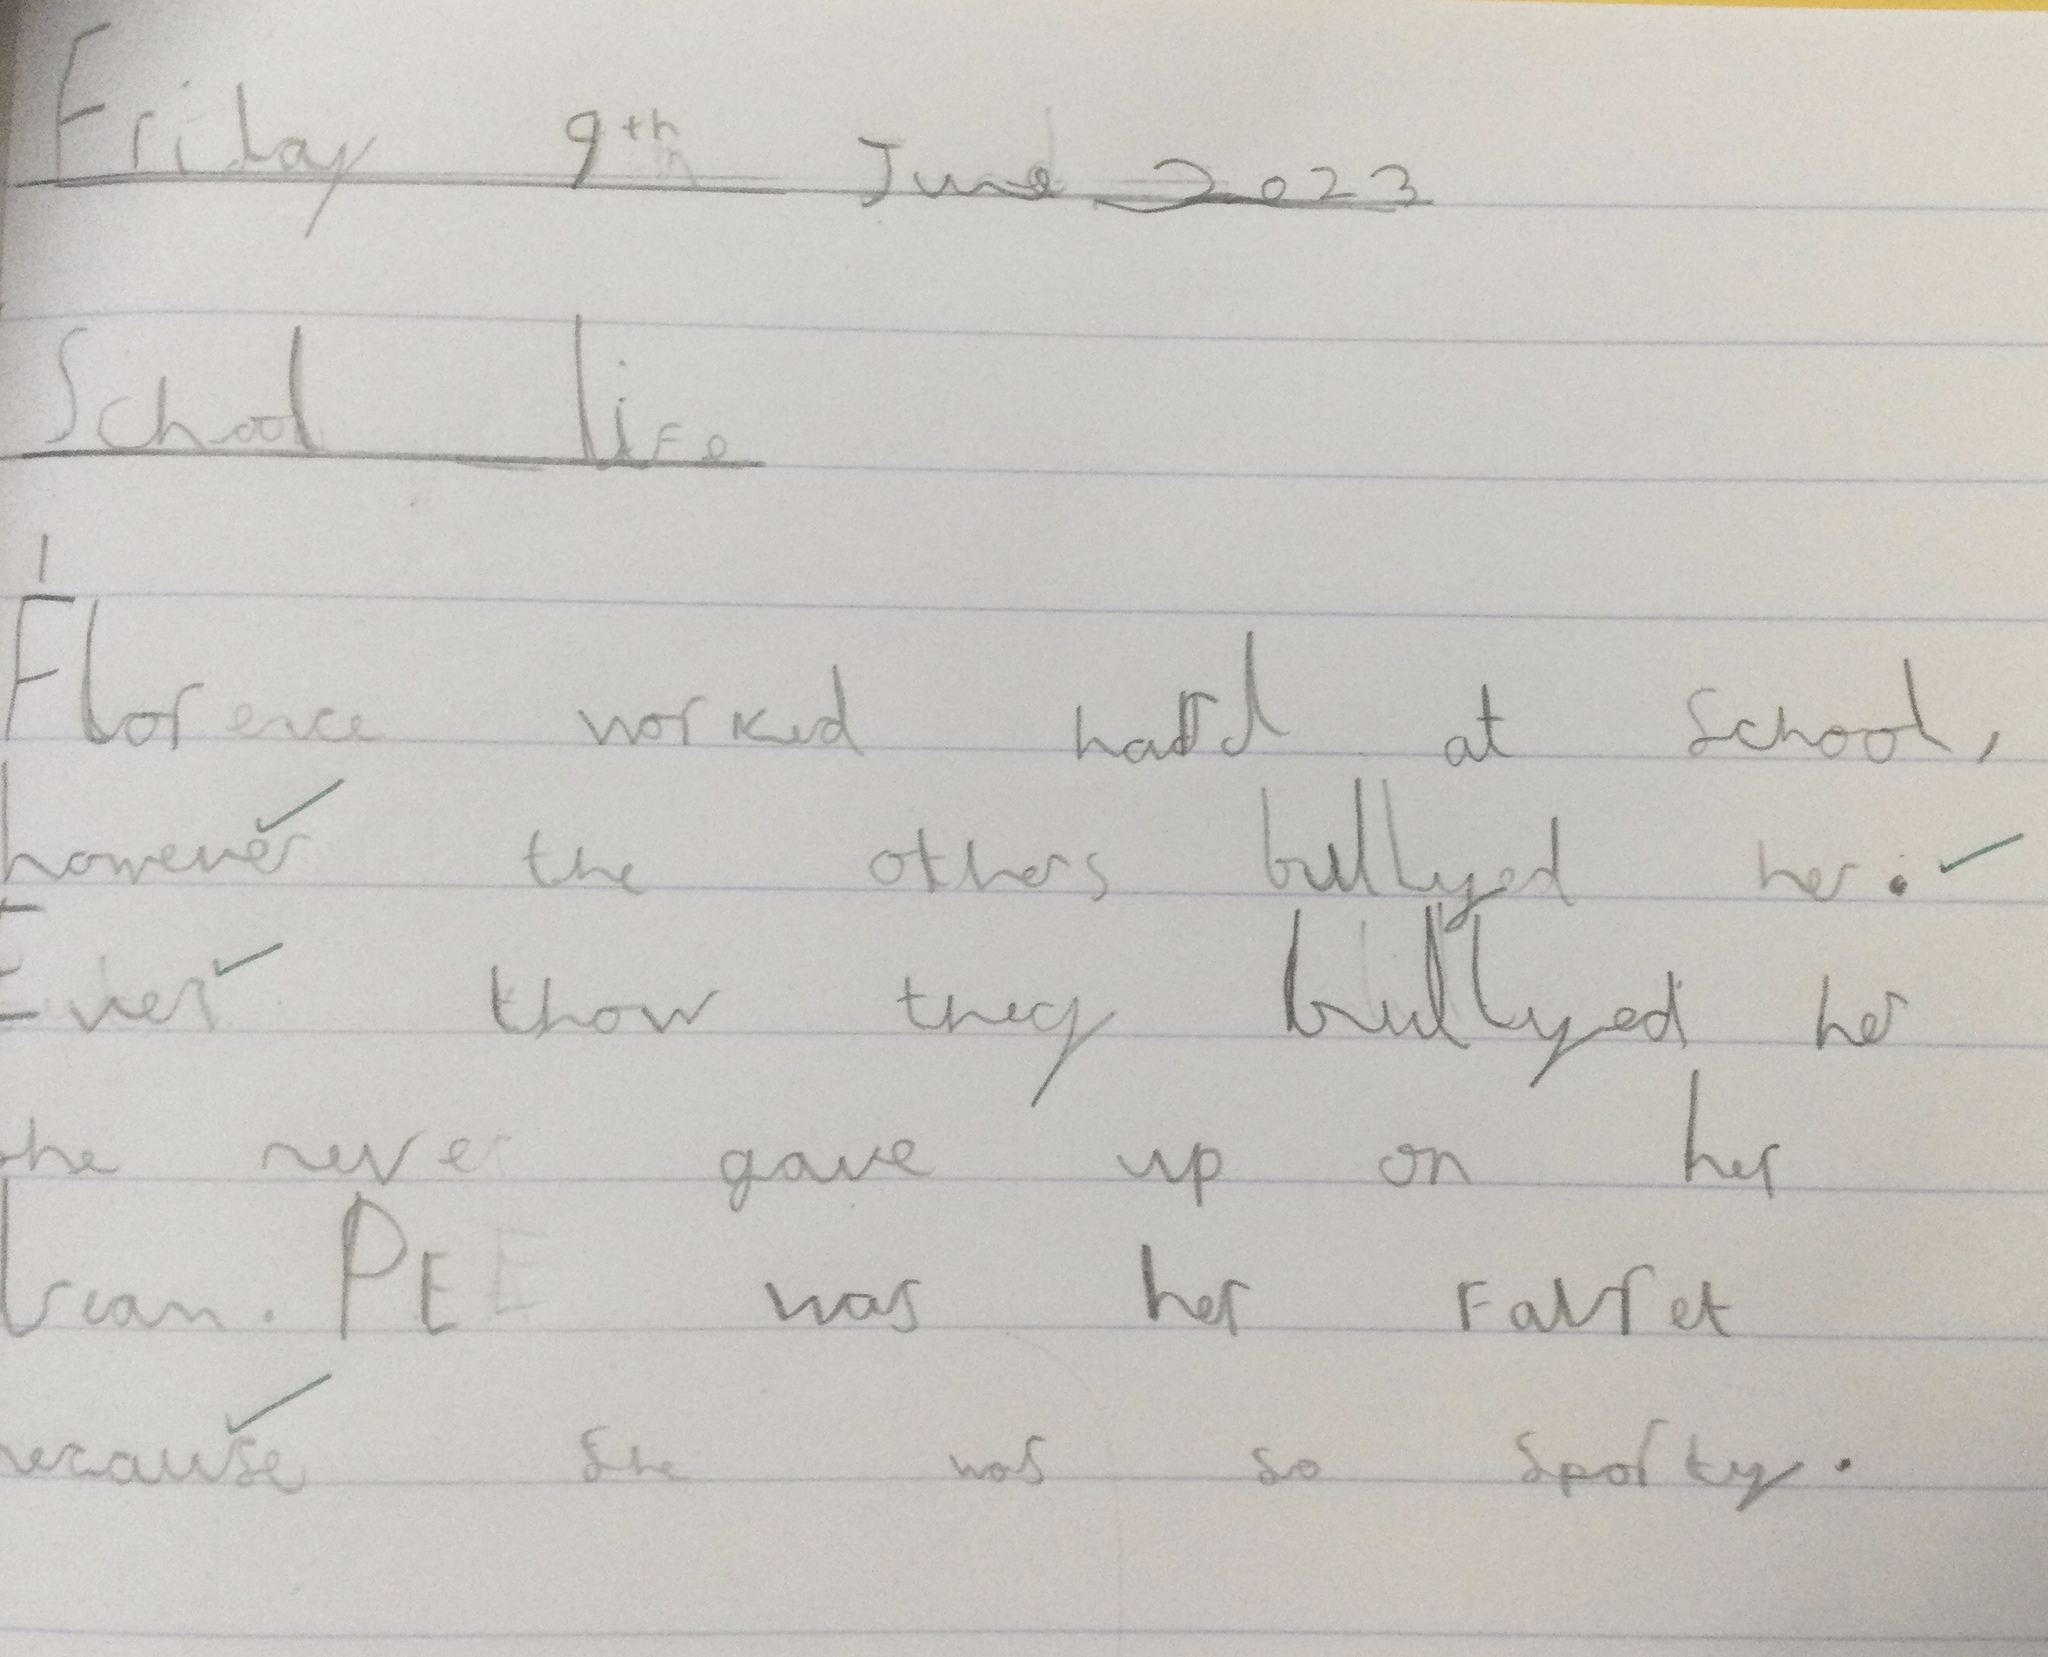 Friday 9th June 2023
School life
Florence worked hard at School,
however the others bullyed her.
Even thow they bullyed her
she never gave up on her
. PE was her favret
because She was so Sporky.